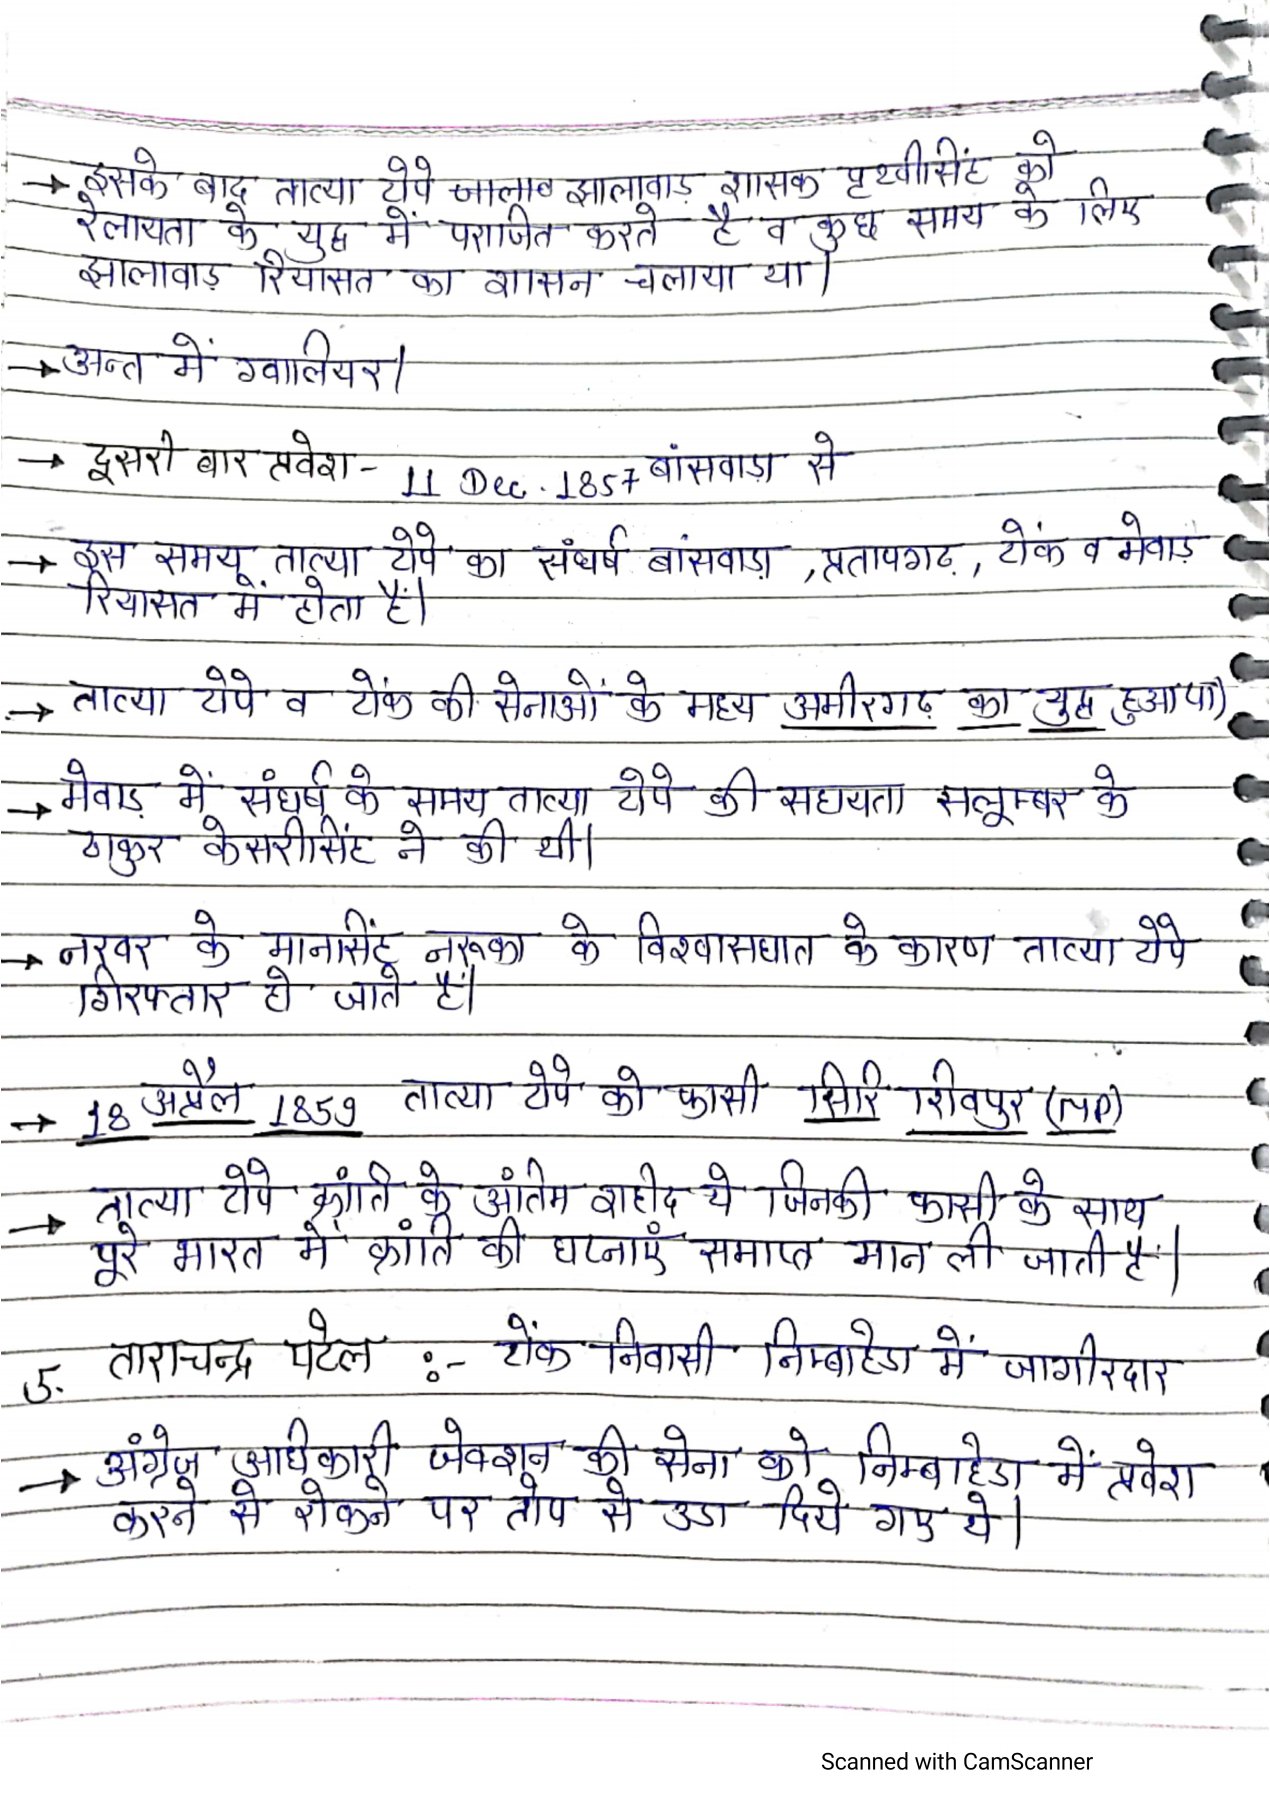 → इसके बाद तात्या टोपे जालाव झालावाड़ शासक पृथ्वीसिंह को
रेलायता के युद्ध में पराजित करते है व कुछ समय के लिए
झालावाड़ रियासत का शासन चलाया था।
→ अन्त में ग्वालियर।
→ दूसरी बार प्रवेश - 11 Dec. 1857 बांसवाडा से
→ इस समय तात्या टोपे का संघर्ष बांसवाडा, प्रतापगढ, टोंक व मेवाड़
रियासत में होता हैं।
→ तात्या टोपे व टोंक की सेनाओं के मध्य अमीरगढ का युद्ध हुआ था।
→ मेवाड़ में संघर्ष के समय तात्या टोपे की सहायता सलूम्बर के
ठाकुर केसरीसिंह ने की थी।
→ नरवर के मानसिंह नरूका के विश्वासघात के कारण तात्या टोपे
गिरफ्तार हो जाते हैं।
→ 18 अप्रैल 1859 तात्या टोपे को फासी सिरि शिवपुर (MP)
→ तात्या टोपे क्रांति के अंतिम शहीद थे जिनकी फासी के साथ
पूरे भारत में क्रांति की घटनाएँ समाप्त मान ली जाती हैं।
5. ताराचन्द्र पटेल :- टोंक निवासी निम्बाहेडा में जागीरदार
→ अंग्रेज अधिकारी जेक्शन की सेना को निम्बाहेडा में प्रवेश
करने से रोकने पर तोप से उडा दिये गए थे।
Scanned with CamScanner